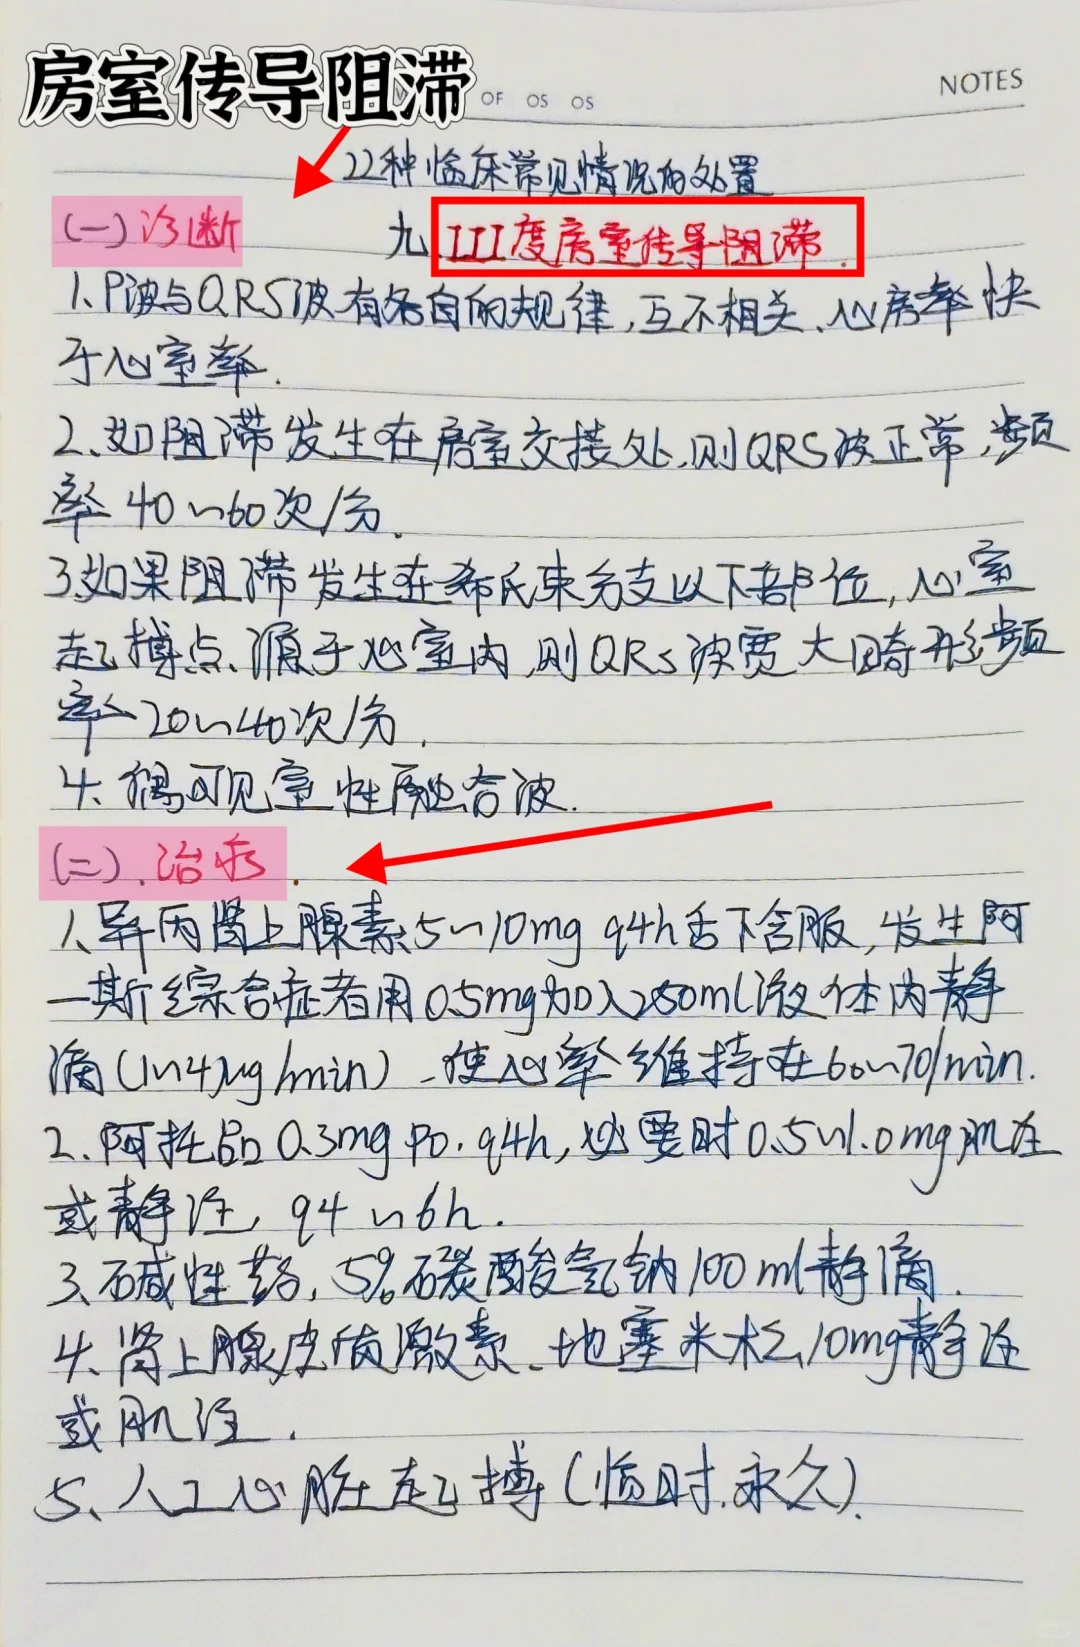 房室传导阻滞
OF OS OS
NOTES
22种临床常见情况的处置
(一)诊断
九.III度房室传导阻滞.
1、P波与QRS波有各自的规律,互不相关、心房率快
于心室率.
2、如阻滞发生在房室交接处,则QRS波正常,频
率40~60次/分.
3如果阻滞发生在希氏束分支以下部位,心室
起搏点、源于心室内,则QRS波宽大畸形频
率20~40次/分.
4、偶可见室性融合波.
(二).治疗.
1、异丙肾上腺素5~10mg q4h舌下含服,发生阿
一斯综合症者用0.5mg加入250ml液体内静
滴(1~4μg/min)、使心率维持在60~70/min.
2、阿托品0.3mg po.q4h,必要时0.5~1.0mg肌注
或静注,q4~6h.
3、碱性药,5%碳酸氢钠100ml静滴.
4、肾上腺皮质激素、地塞米松10mg静注
或肌注.
5、人工心脏起搏(临时、永久).